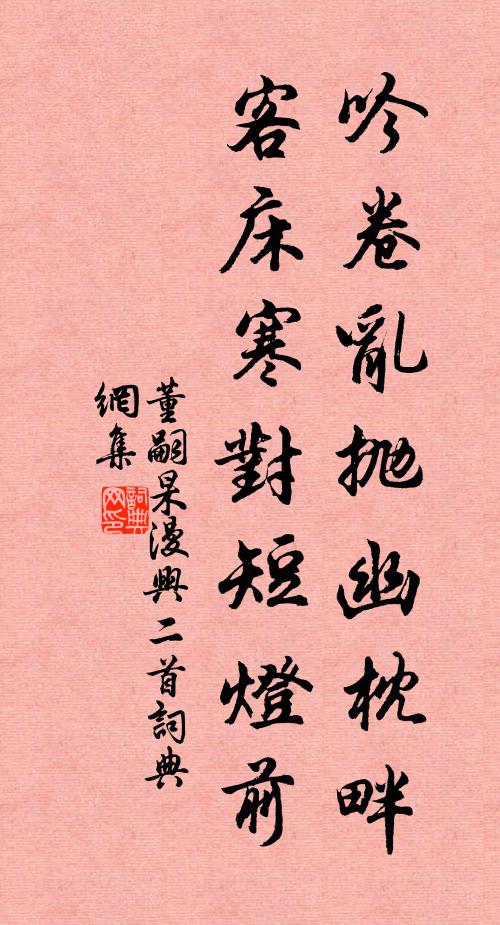 吟卷亂抛幽枕畔
客床寒對短燈前
董嗣杲漫興二首詞典
網集
詞典
网印